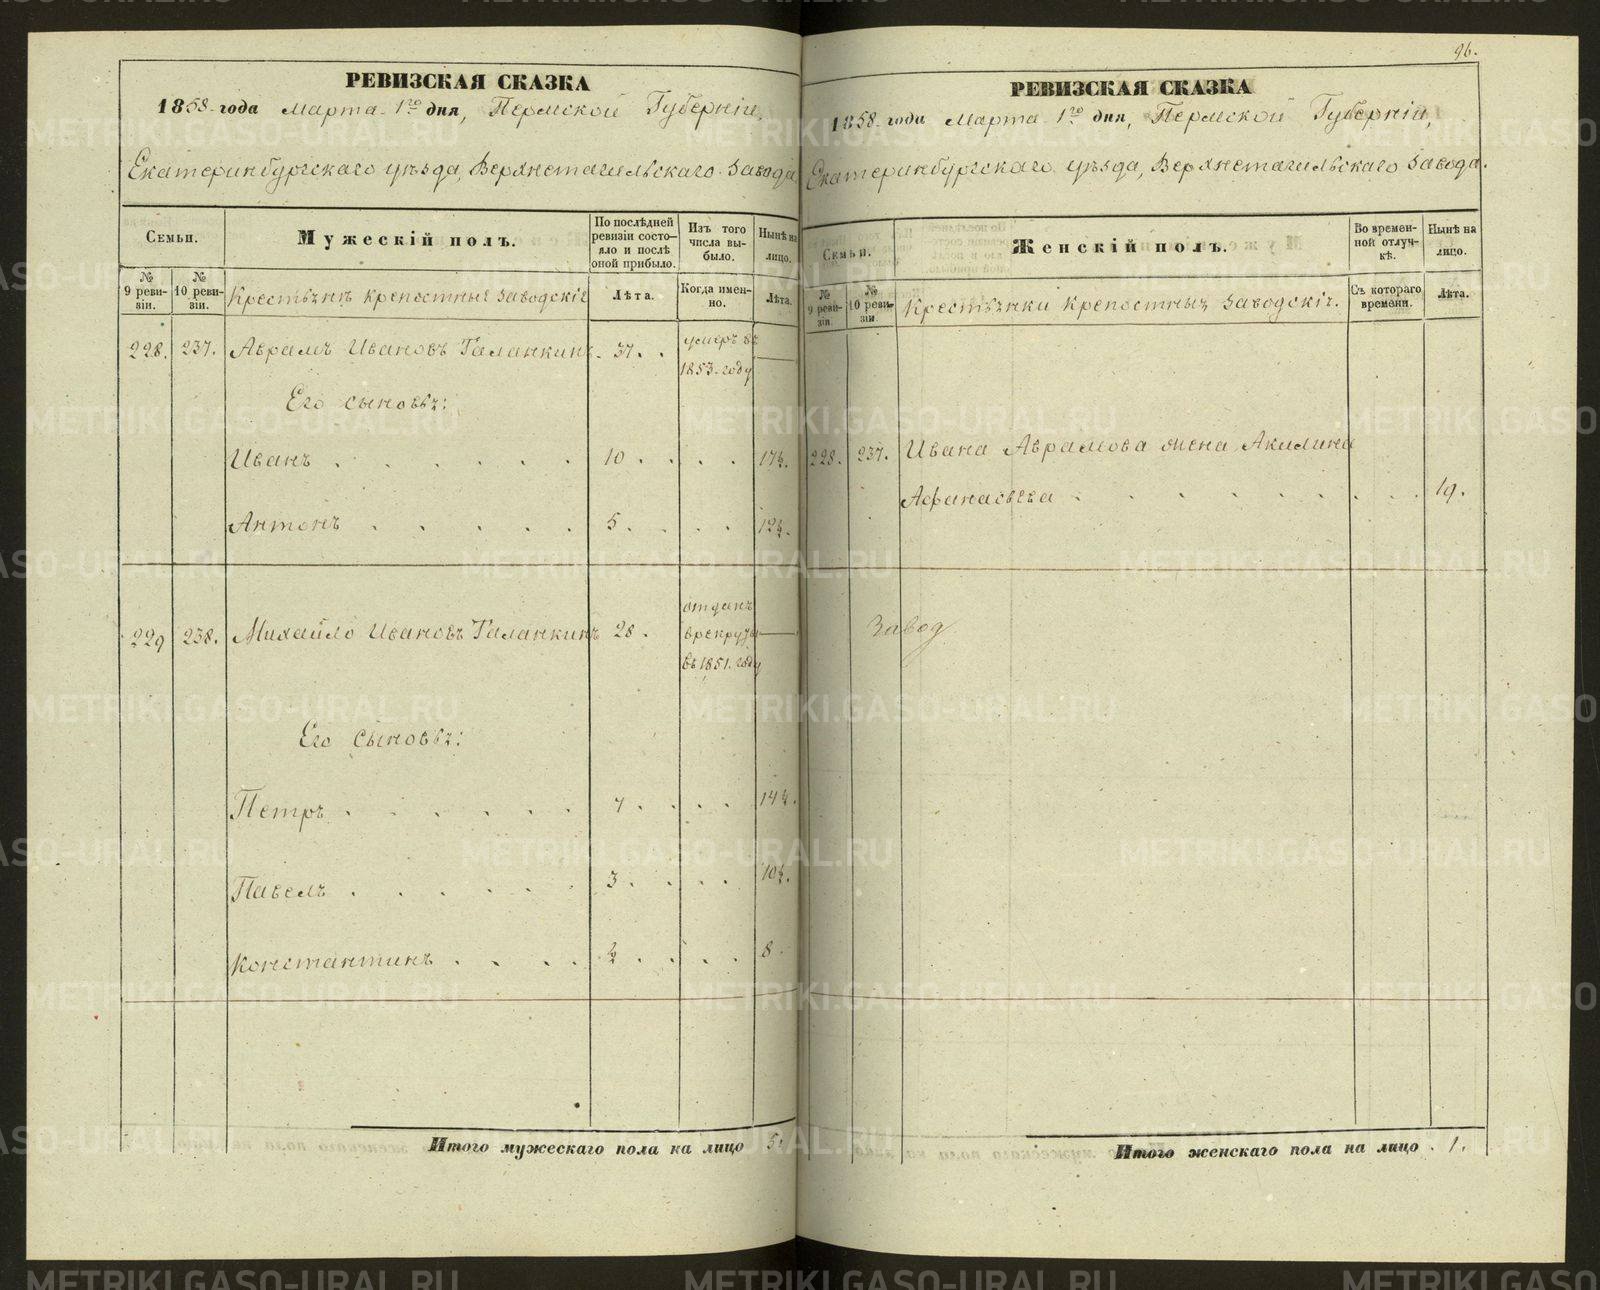 РЕВИЗСКАЯ СКАЗКА
1858 года Марта 1го дня, Пермской Губерніи,
Екатеринбургскаго уѣзда, Верхнетагильскаго завода
Семьи.
Мужескій полъ.
По послѣдней ревизіи состояло и послѣ оной прибыло.
Изъ того числа выбыло.
Нынѣ на лицо.
№ 9 ревизіи.
№ 10 ревизіи.
Крестьяне крепостные заводскіе
Лѣта.
Когда именно.
Лѣта.
228. 237. Аврамъ Ивановъ Галанкинъ 37. умеръ въ 1853. году
Его сыновья:
Иванъ 10. 17½.
Антонъ 5. 12½.
229 238. Михайло Ивановъ Галанкинъ 28. отданъ в рекруты въ 1851. году
Его сыновья:
Петръ 7. 14½.
Павелъ 3. 10½.
Константинъ ½. 8.
Итого мужескаго пола на лицо 5.
96.
РЕВИЗСКАЯ СКАЗКА
1858 года Марта 1го дня, Пермской Губерніи,
Екатеринбургскаго уѣзда, Верхнетагильскаго завода.
Семьи.
Женскій полъ.
Во временной отлучкѣ.
Нынѣ на лицо.
№ 9 ревизіи.
№ 10 ревизіи.
Крестьянки крепостныя заводскіе.
Съ котораго времени.
Лѣта.
228. 237. Ивана Аврамова жена Акилина
Афанасьева 19.
Завод
Итого женскаго пола на лицо 1.
METRIKI.GASO-URAL.RU